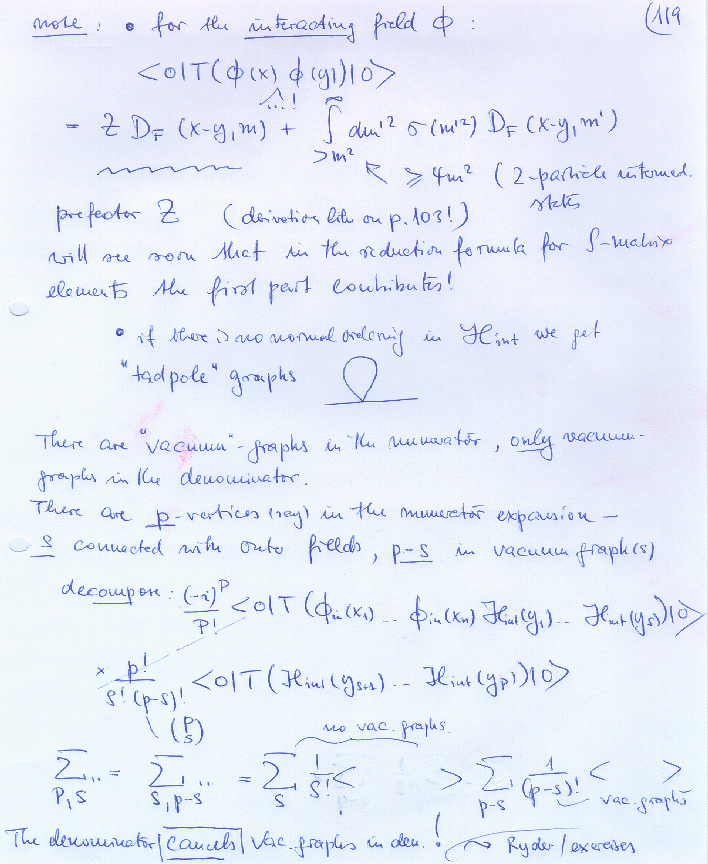 note : • for the interacting field ϕ : (119
<0|T(ϕ(x) ϕ(y))|0>
^...!
= Z D_F (x-y, m) + ∫_{>m²}^∞ dm'² σ(m'²) D_F (x-y, m')
≥ 4m² ( 2-particle intermed. states
prefactor Z (derivation like on p. 103!)
will see soon that in the reduction formula for S-matrix
elements the first part contributes!
• if there is no normal ordering in ℋ_int we get
"tadpole" graphs
There are "vacuum"-graphs in the numerator, only vacuum-
graphs in the denominator.
There are p-vertices (say) in the numerator expansion –
s connected with outer fields, p-s in vacuum graph(s)
decompose : (-i)^p/p! <0|T(ϕ_in(x_1) .. ϕ_in(x_n) ℋ_int(y_1) .. ℋ_int(y_s))|0>
× p!/(s!(p-s)!) <0|T(ℋ_int(y_{s+1}) .. ℋ_int(y_p))|0>
(p s) no vac. graphs.
Σ_{p,s} .. = Σ_{s,p-s} .. = Σ_s 1/s! < > Σ_{p-s} 1/(p-s)! < >
vac. graphs
The denominator cancels vac. graphs in den. ! → Ryder/exercises